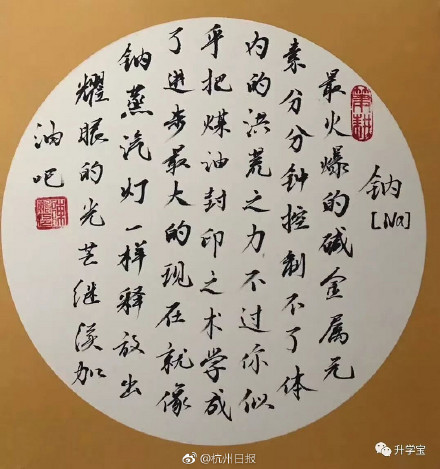 钠
[Na]
最火爆的碱金属元
素分分钟控制不了体
内的洪荒之力不过你似
乎把煤油封印之术学成
了进步最大的现在就像
钠蒸汽灯一样释放出
耀眼的光芒继续加
油吧
@杭州日报
升学宝